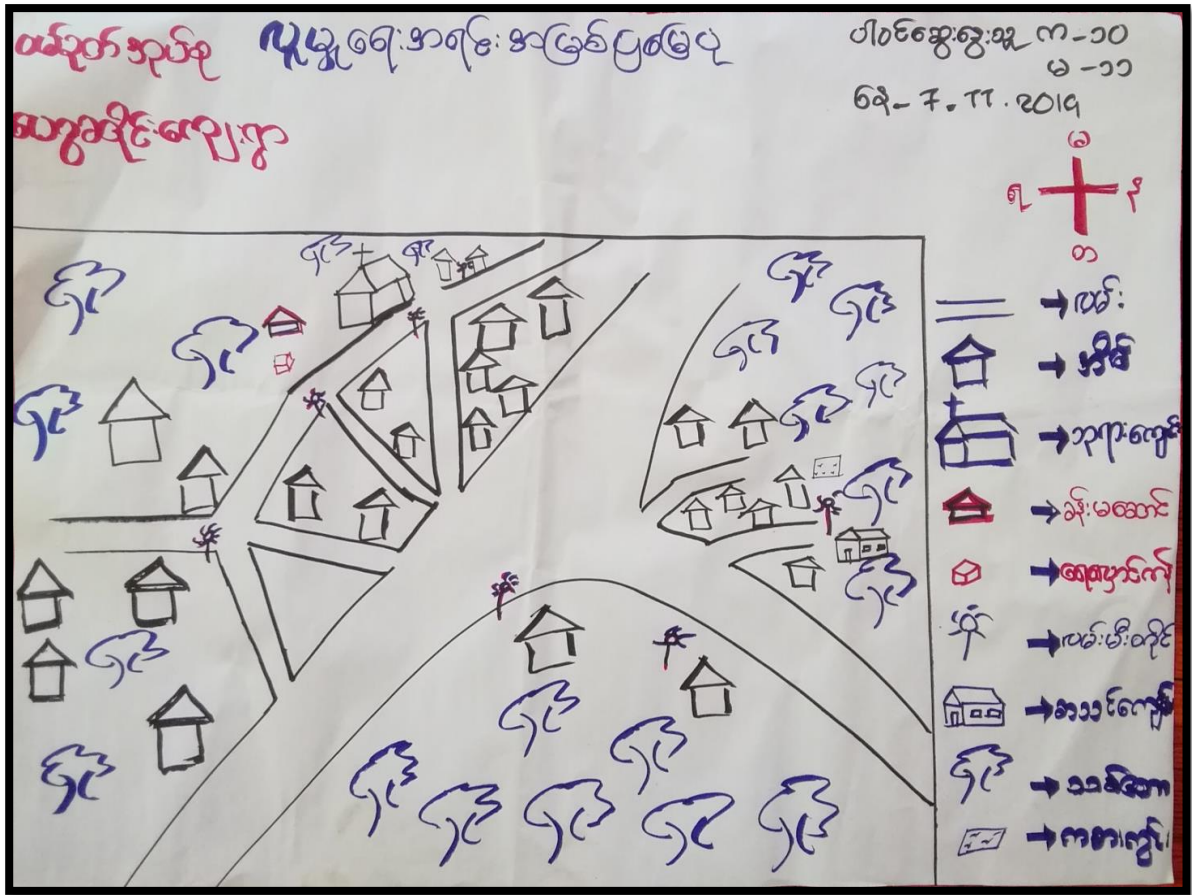 လူမှုရေးအရင်းအမြစ်ပြမြေပုံ
ပါဝင်ဆွေးနွေးသူ ကျ-၁၀
မ -၁၁
နေ့- 7.11.2019
မ
ရ
န
တ
လမ်း
အိမ်
ဘုရားကျောင်း
ခန်းမဆောင်
ရေလှောင်ကန်
လမ်းမီးတိုင်
စာသင်ကျောင်း
သစ်တော
ကစားကွင်း